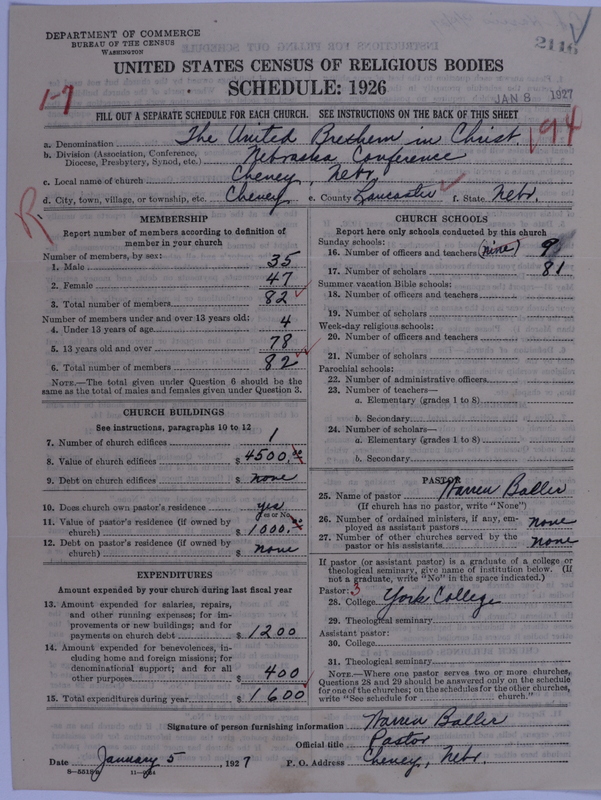 DEPARTMENT OF COMMERCE
BUREAU OF THE CENSUS
WASHINGTON
2116
UNITED STATES CENSUS OF RELIGIOUS BODIES
SCHEDULE: 1926
1-7
JAN 8 1927
FILL OUT A SEPARATE SCHEDULE FOR EACH CHURCH. SEE INSTRUCTIONS ON THE BACK OF THIS SHEET
194
a. Denomination The United Brethern in Christ.
b. Division (Association, Conference, Diocese, Presbytery, Synod, etc.) Nebraska Conference
c. Local name of church Cheney, Nebr.
d. City, town, village, or township, etc. Cheney e. County Lancaster f. State Nebr.
R.
MEMBERSHIP
Report number of members according to definition of
member in your church
Number of members, by sex:
1. Male 35
2. Female 47
3. Total number of members 82
Number of members under and over 13 years old:
4. Under 13 years of age 4
5. 13 years old and over 78
6. Total number of members 82
NOTE.—The total given under Question 6 should be the
same as the total of males and females given under Question 3.
CHURCH BUILDINGS
See instructions, paragraphs 10 to 12
7. Number of church edifices 1
8. Value of church edifices $ 4500.00
9. Debt on church edifices $ none
10. Does church own pastor's residence yes
Yes or No
11. Value of pastor's residence (if owned by
church) $ 1000.00
12. Debt on pastor's residence (if owned by
church) $ none
EXPENDITURES
Amount expended by your church during last fiscal year
13. Amount expended for salaries, repairs,
and other running expenses; for im-
provements or new buildings; and for
payments on church debt $ 1200
14. Amount expended for benevolences, in-
cluding home and foreign missions; for
denominational support; and for all
other purposes $ 400
15. Total expenditures during year $ 1600
CHURCH SCHOOLS
Report here only schools conducted by this church
Sunday schools:
16. Number of officers and teachers (nine) 9
17. Number of scholars 81
Summer vacation Bible schools:
18. Number of officers and teachers
19. Number of scholars
Week-day religious schools:
20. Number of officers and teachers
21. Number of scholars
Parochial schools:
22. Number of administrative officers
23. Number of teachers—
a. Elementary (grades 1 to 8)
b. Secondary
24. Number of scholars—
a. Elementary (grades 1 to 8)
b. Secondary
PASTOR
25. Name of pastor Warren Baller
(If church has no pastor, write "None")
26. Number of ordained ministers, if any, em-
ployed as assistant pastors none
27. Number of other churches served by the
pastor or his assistants none
If pastor (or assistant pastor) is a graduate of a college or
theological seminary, give name of institution below. (If
not a graduate, write "No" in the space indicated.)
Pastor: 3
28. College York College
29. Theological seminary
Assistant pastor:
30. College
31. Theological seminary
NOTE.—Where one pastor serves two or more churches,
Questions 28 and 29 should be answered only on the schedule
for one of the churches; on the schedules for the other churches,
write "See schedule for church."
Signature of person furnishing information Warren Baller
Official title Pastor
Date January 5, 1927 P. O. Address Cheney, Nebr.